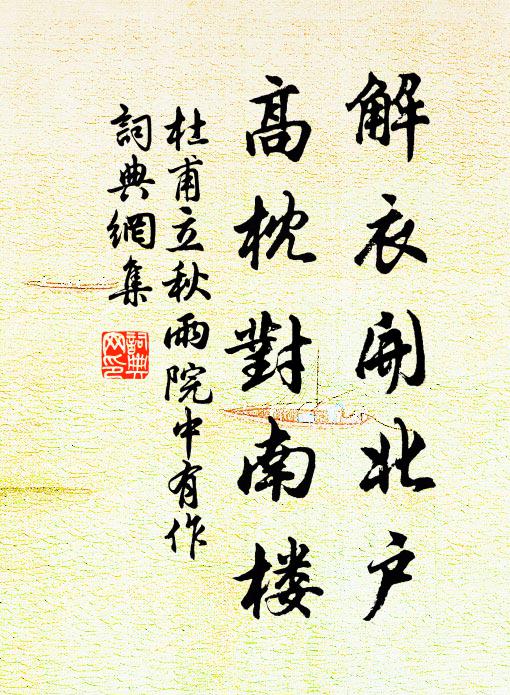 解衣開北户
高枕對南楼
杜甫立秋雨院中有作
詞典網集
詞典
网印